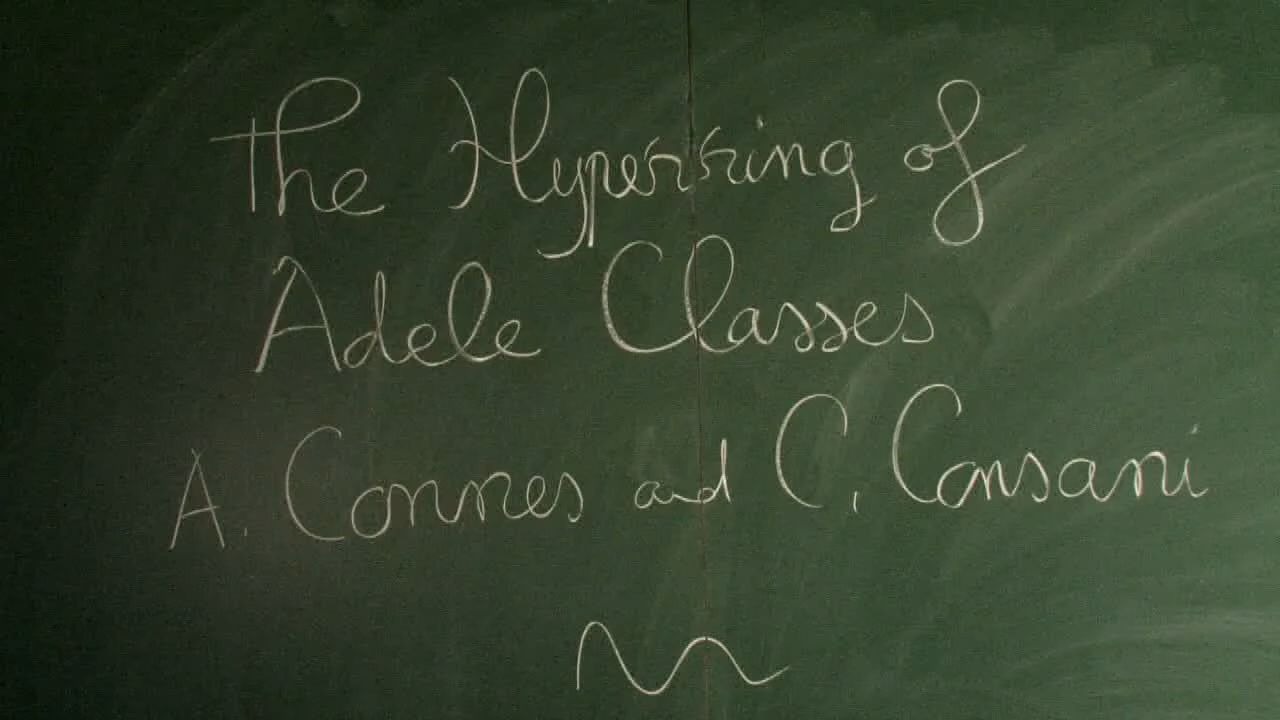 The Hyperring of
Adele Classes
A. Connes and C. Consani